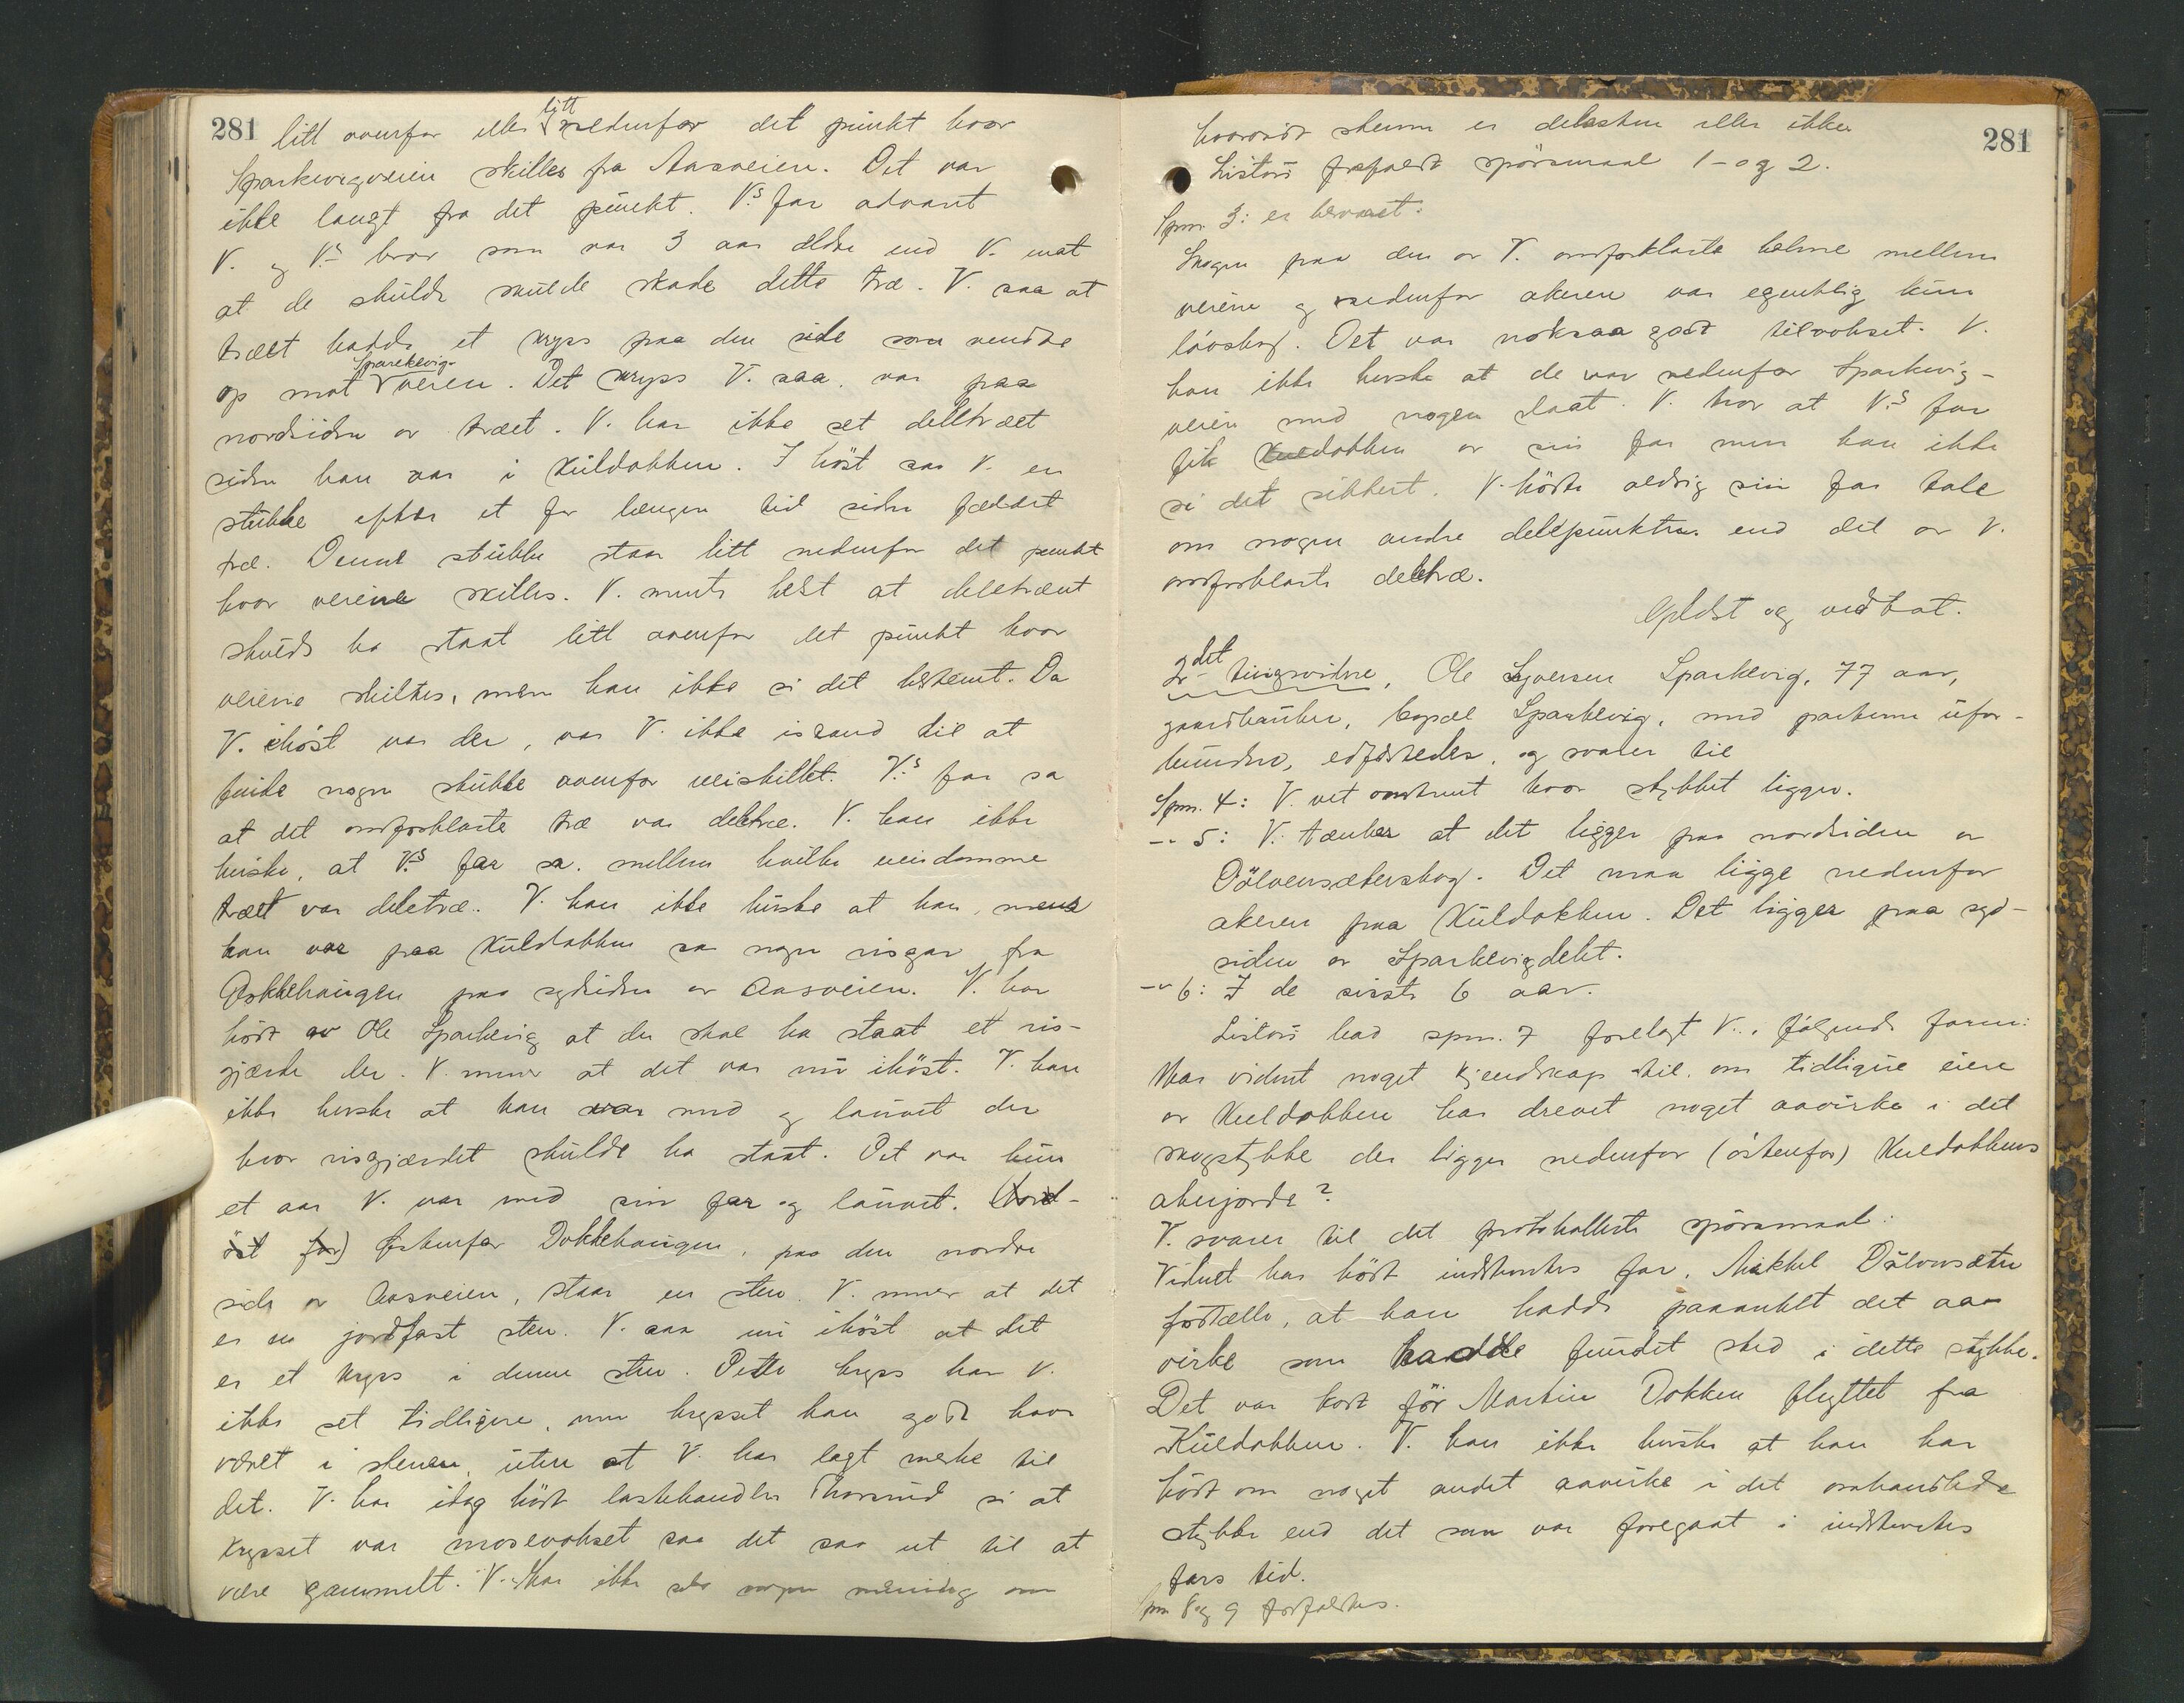 281 litt ovenfor eller litt nedenfor det punkt hvor
Sparkevigveien skilles fra Aasveien. Det var
ikke langt fra det punkt. V.s far advart
V. og V.s bror som var 3 aar ældre end V. mot
at de skulde skade dette træ. V. saa at
træet hadde et kryss paa den side som vendte
op mot Sparekevig-veien. Det kryss V. saa, var paa
nordsiden av træet. V. har ikke set deletræet
siden han var i Kuldokken. I höst saa V. en
stubbe efter et for længere tid siden fældet
træ. Denne stubbe staar litt nedenfor det punkt
hvor veiene skilles. V. mente helst at deletræet
skulde ha staat litt ovenfor det punkt hvor
veiene skiltes, men kan ikke si det bestemt. Da
V. ihöst var der, var V. ikke istand til at
finde nogen stubbe ovenfor veiskillet. V.s far sa
at det omforklarte træ var deletræ. V. kan ikke
huske, at V.s far sa, mellem hvilke eiendomme
træet var deletræ. V. kan ikke huske at han, mens
han var paa Kuldokken saa nogen risgar fra
Dokkehaugen paa sydsiden av Aasveien. V. har
hört av Ole Sparkevig at der skal ha staat et ris-
gjærde der. V. mener at det var nu ihöst. V. kan
ikke huske at han var med og lauvet der
hvor risgjærdet skulde ha staat. Det var kun
et aar V. var med sin far og lauvet. (Nord-
öst for) Østenfor Dokkehaugen, paa den nordre
side av Aasveien, staar en sten. V. mener at det
er en jordfast sten. V. saa nu ihöst at det
er et kryss i denne sten. Dette kryss har V.
ikke set tidligere, men krysset kan godt have
været i stenen, uten at V. har lagt merke til
det. V. har idag hört lastehandler Thorsrud si at
krysset var mosevokset saa det saa ut til at
være gammelt. V. har ikke nogen mening om
281
hvorvidt stenen er delesten eller ikke.
Listou frafaldt spörsmaal 1 og 2.
Spm. 3: er besvaret.
Skogen paa den av V. omforklarte helme mellem
veiene og nedenfor akeren var egentlig kun
lövskog. Det var noksaa godt tilvokset. V.
kan ikke huske at de var nedenfor Sparkevig-
veien med nogen slaat. V. tror at V.s far
fik Kuldokken av sin far men kan ikke
si det sikkert. V. hörte aldrig sin far tale
om nogen andre delepunkter end det av V.
omforklarte deletræ.
Oplæst og vedtat.
2det tingsvidne, Ole Syversen Sparkevig, 77 aar,
gaardbruker, bopæl Sparkevig, med parterne ufor-
bunden, edfæstedes, og svarer til
Spm. 4: V. vet omtrent hvor stykket ligger.
-"- 5: V. tænker at det ligger paa nordsiden av
Dölvensæterskog. Det maa ligge nedenfor
akeren paa Kuldokken. Det ligger paa syd-
siden av Sparkevigdelet.
-"- 6: I de sidste 6 aar.
Listou bad spm. 7 forelagt V. i fölgende form:
Har vidnet noget kjendskap til, om tidligere eiere
av Kuldokken har drevet noget aavirke i det
skogstykke der ligger nedenfor (östenfor) Kuldokkens
akerjorde?
V. svarer til det protokollerte spörsmaal:
Vidnet har hört indstevntes far, Mikkel Dölvensæter
fortælle, at han hadde paaanket det aa-
virke som hadde fundet sted i dette stykke.
Det var kort för Martin Dokken flyttet fra
Kuldokken. V. kan ikke huske at han har
hört om noget andet aavirke i det omhandlede
stykke end det som var foregaat i indstevntes
fars tid.
Spm. 8 og 9 frafaldtes.